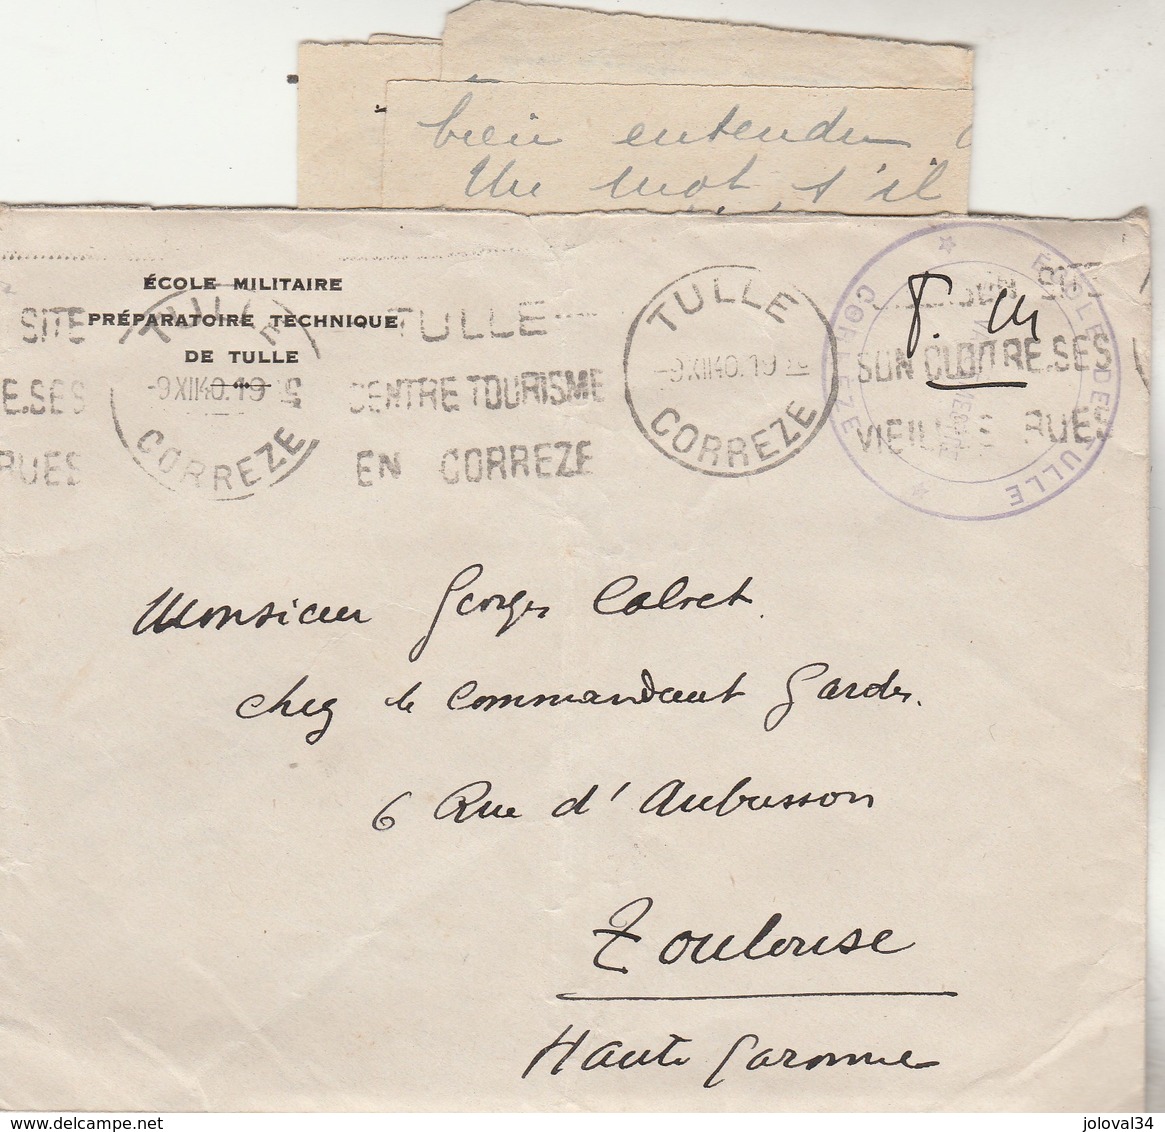 bien entendu
Un mot s'il
ÉCOLE MILITAIRE
PRÉPARATOIRE TECHNIQUE
DE TULLE
SITE
E.SES
RUES
TULLE
-9XII40.19
CORREZE
TULLE
CENTRE TOURISME
EN CORREZE
TULLE
-9XII40.19
CORREZE
SITE
SON CLOITRE.SES
VIEILLES RUES
F. M
TULLE
CORREZE
Monsieur Georges Calvet.
chez le Commandant Gardes.
6 Rue d'Aubusson
Toulouse
Haute Garonne
www.delcampe.net
joloval34